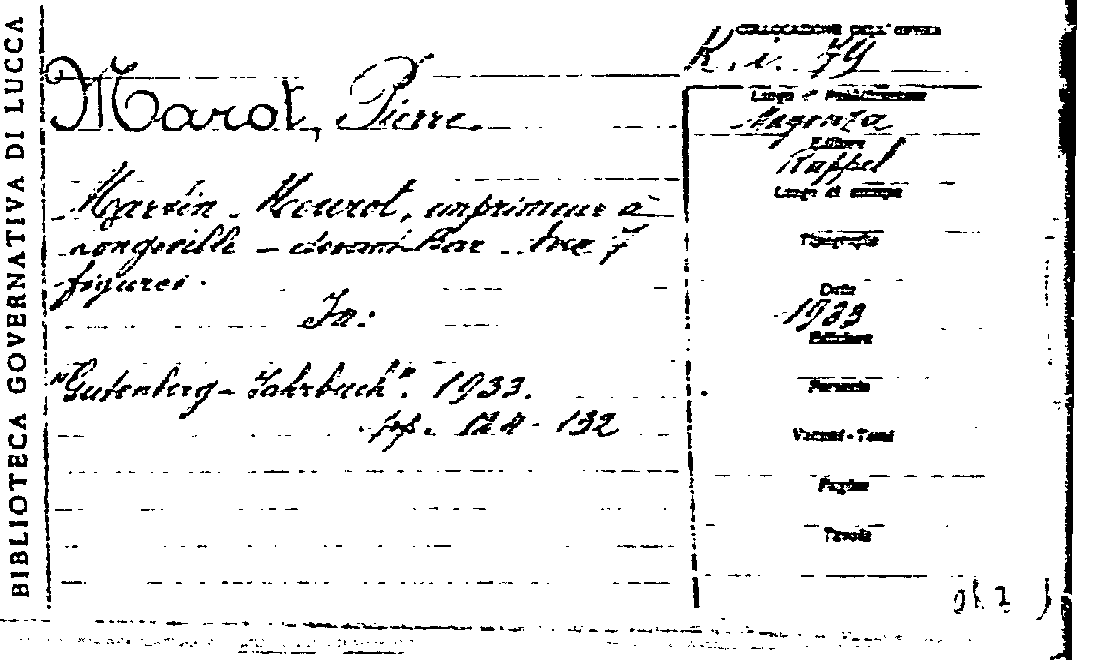 BIBLIOTECA GOVERNATIVA DI LUCCA
COLLOCAZIONE DELL'OPERA
R. i. 79
Marot, Pierre.
Martin Mourot, imprimeur à
Longeville - devant Bar. Avec 7
figures.
In:
"Gutenberg-Jahrbuch". 1933.
pp. 124-132
Luogo di Pubblicazione
Magonza
Editore
Ruppel
Luogo di stampa
Tipografia
Data
1933
Edizione
Formato
Volumi - Tomi
Pagine
Tavole